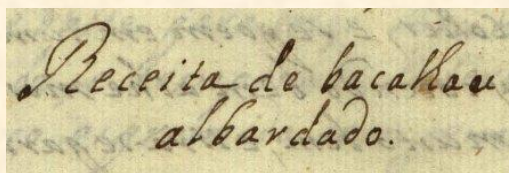 Receita de bacalhau
albardado.